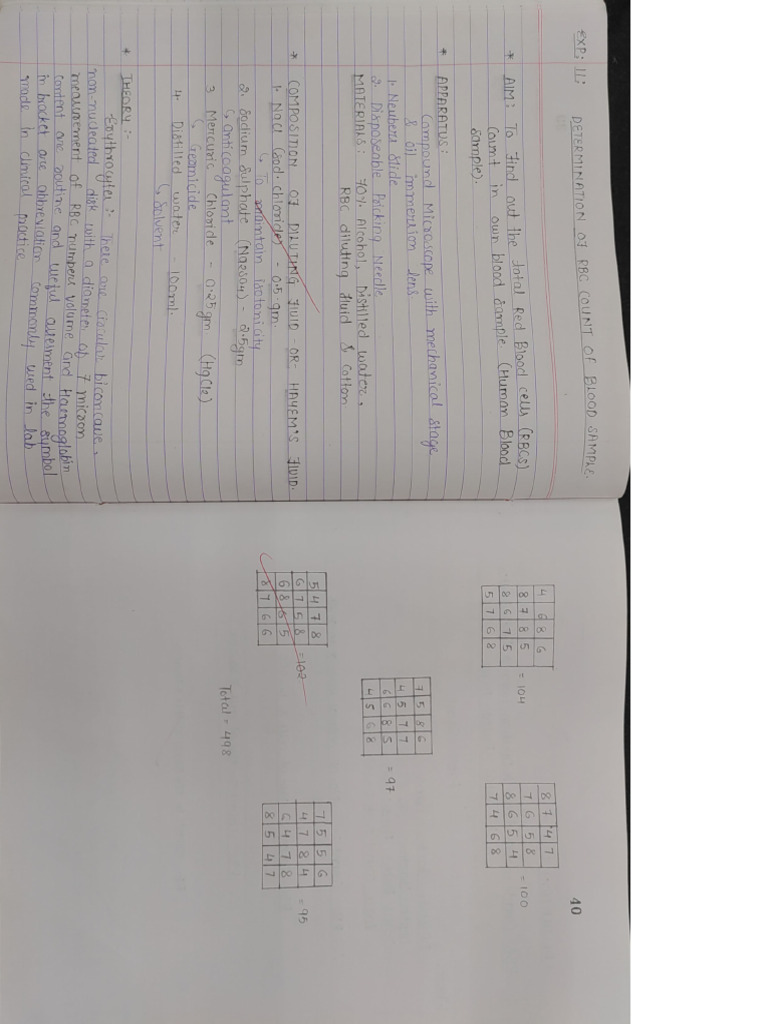 EXP: 11: DETERMINATION OF RBC COUNT OF BLOOD SAMPLE.
* AIM: To find out the total Red Blood cells (RBCs)
count in own blood sample (Human Blood
sample).
* APPARATUS:
Compound Microscope with mechanical stage
& oil immersion lens
1. Neubers slide
2. Disposeable Packing Needle
MATERIALS: 70% Alcohol, Distilled water,
RBC diluting fluid & cotton
* COMPOSITION OF DILUTING FLUID OR HAYEM'S FLUID.
1. Nacl (sod. chloride) - 0.5 gm.
↳ To maintain isotonicity
2. Sodium Sulphate (Na2SO4) - 2.5gm
↳ anticoagulant
3 Mercuric Chloride - 0.25gm (HgCl2)
↳ Germicide
4. Distilled water - 100ml.
↳ Solvent
* THEORY :-
Erythrocytes :- There are circular, biconcave,
non-nucleated disk with a diameter of 7 micron
measurement of RBC numbers volume and Haemoglobin
content are routine and useful assesment the symbol
in bracket are abbreviation commonly used in lab
made in clinical practice
40
4 6 8 6
8 7 8 5
8 6 7 5
5 7 6 8
= 104
8 7 4 7
7 6 5 8
8 6 5 4
7 4 6 8
= 100
7 5 8 6
4 5 7 7
6 6 8 5
4 5 6 8
= 97
5 4 7 8
6 7 5 8
6 8 6 5
8 7 6 6
= 102
7 5 5 6
4 7 8 4
6 4 7 8
8 5 4 7
= 95
Total = 498